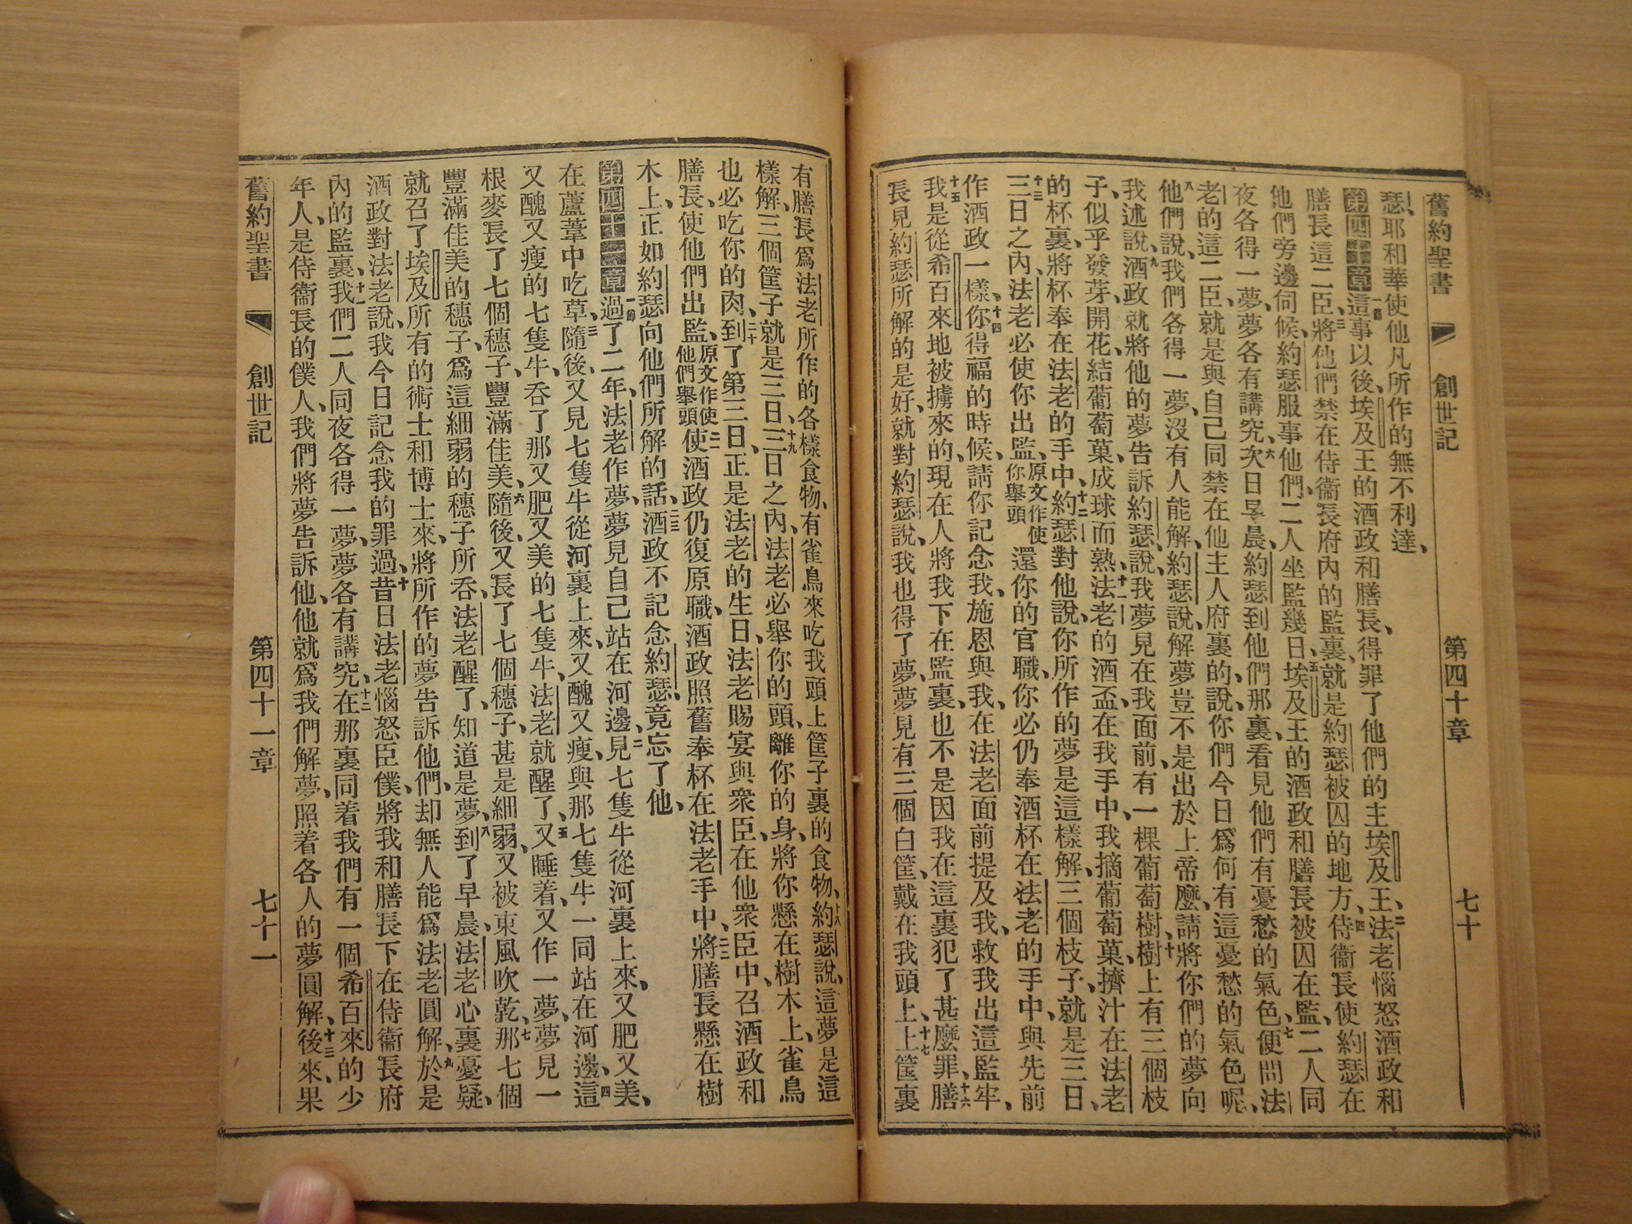 舊約聖書 創世記 第四十章 七十
瑟、耶和華使他凡所作的無不利達、
第四十章一節這事以後、埃及王的酒政和膳長、得罪了他們的主埃及王、二法老惱怒酒政和
膳長這二臣、三將他們禁在侍衞長府內的監裏、就是約瑟被囚的地方、四侍衞長使約瑟在
他們旁邊伺候、約瑟服事他們、二人坐監幾日、五埃及王的酒政和膳長被囚在監、二人同
夜各得一夢、夢各有講究、六次日早晨、約瑟到他們那裏、看見他們有憂愁的氣色、七便問法
老的這二臣、就是與自己同禁在他主人府裏的、說、你們今日爲何有這憂愁的氣色呢、
八他們說、我們各得一夢、沒有人能解、約瑟說、解夢豈不是出於上帝麼、請將你們的夢向
我述說、九酒政就將他的夢告訴約瑟、說、我夢見在我面前、有一棵葡萄樹、十樹上有三個枝
子、似乎發芽、開花、結葡萄菓、成球而熟、十一法老的酒盃在我手中、我摘葡萄菓、擠汁在法老
的杯裏、將杯奉在法老的手中、十二約瑟對他說、你所作的夢是這樣解、三個枝子、就是三日、
十三三日之內、法老必使你出監、原文作使你舉頭還你的官職、你必仍奉酒杯在法老的手中、與先前
作酒政一樣、十四你得福的時候、請你記念我、施恩與我、在法老面前提及我、救我出這監牢、
十五我是從希百來地被擄來的、現在人將我下在監裏、也不是因我在這裏犯了甚麼罪、十六膳
長見約瑟所解的是好、就對約瑟說、我也得了夢、夢見有三個白筐、戴在我頭上、十七上筐裏
有膳長爲法老所作的各樣食物、有雀鳥來吃我頭上筐子裏的食物、十八約瑟說、這夢是這
樣解、三個筐子、就是三日、十九三日之內、法老必舉你的頭、離你的身、將你懸在樹木上、雀鳥
也必吃你的肉、二十到了第三日、正是法老的生日、法老賜宴與衆臣、在他衆臣中、召酒政和
膳長、使他們出監、原文作使他們舉頭二一使酒政仍復原職、酒政照舊奉杯在法老手中、二二將膳長懸在樹
木上、正如約瑟向他們所解的話、二三酒政不記念約瑟、竟忘了他、
第四十一章一節過了二年、法老作夢、夢見自己站在河邊、二見七隻牛從河裏上來、又肥又美、
在蘆葦中吃草、三隨後、又見七隻牛從河裏上來、又醜又瘦、與那七隻牛一同站在河邊、四這
又醜又瘦的七隻牛、吞了那又肥又美的七隻牛、法老就醒了、五又睡着、又作一夢、夢見一
根麥長了七個穗子、豐滿佳美、六隨後、又長了七個穗子、甚是細弱、又被東風吹乾、七那七個
豐滿佳美的穗子、爲這細弱的穗子所吞、法老醒了、知道是夢、八到了早晨、法老心裏憂疑、
就召了埃及所有的術士和博士來、將所作的夢告訴他們、却無人能爲法老圓解、九於是
酒政對法老說、我今日記念我的罪過、十昔日法老惱怒臣僕、將我和膳長下在侍衞長府
內的監裏、十一我們二人同夜各得一夢、夢各有講究、十二在那裏同着我們有一個希百來的少
年人、是侍衞長的僕人、我們將夢告訴他、他就爲我們解夢、照着各人的夢圓解、十三後來、果
舊約聖書 創世記 第四十一章 七十一